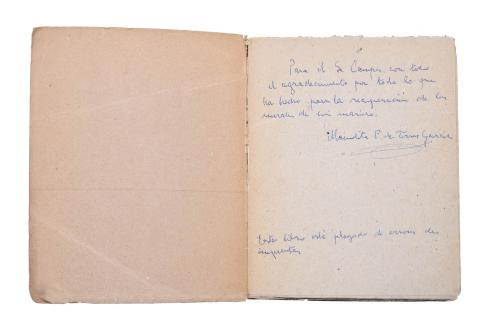 Para el Sr Campos, con todo
el agradecimiento por todo lo que
ha hecho para la recuperación de los
murales de mi marido.
Manolita P. de Torres García
Este libro está plagado de errores de
imprenta